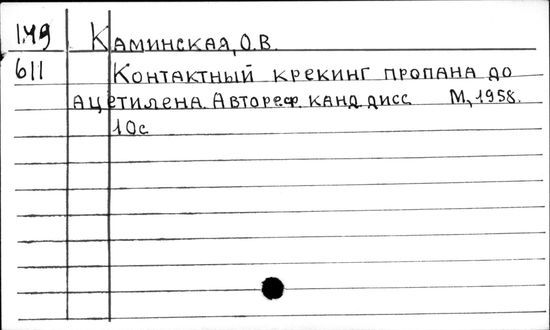 1.49 Каминская, О.В.
611 Контактный крекинг пропана до
ацетилена. Автореф. канд дисс М, 1958.
10с